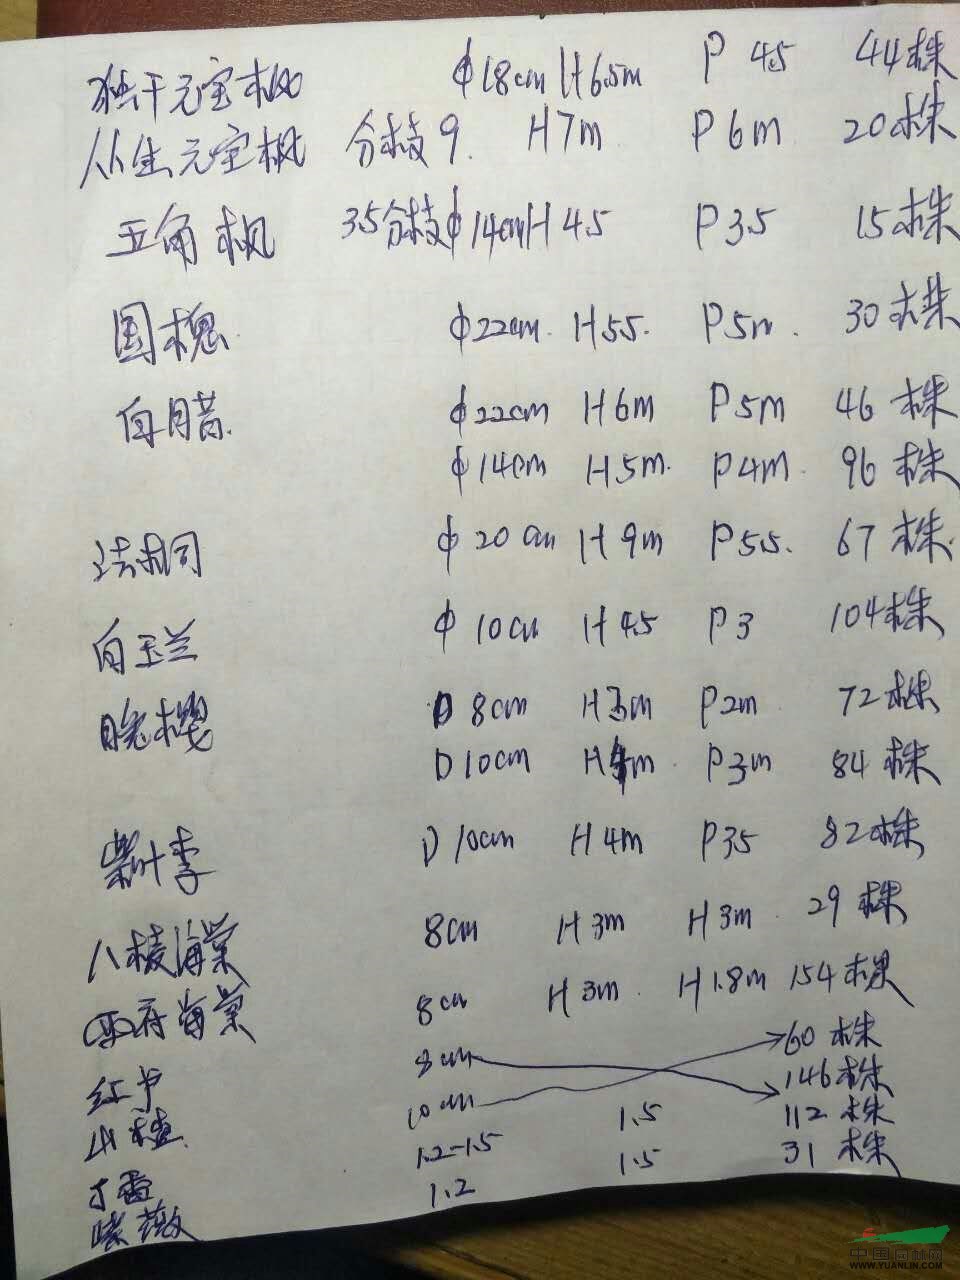 独干元宝枫 ф18cm H6.5m P 4.5 44株
从生元宝枫 分枝9. H7m P6m 20株
五角枫 3.5分枝ф14cm H4.5 P3.5 15株
国槐. ф22cm. H5.5. P5m. 30株
白腊. ф22cm H6m P5m 46株
ф14cm H5m. P4m. 96株
法桐 ф20cm H9m P5.5. 67株.
白玉兰 ф10cm H4.5 P3 104株
晚樱 D8cm H3m P2m 72株
D10cm H4m P3m 84株
紫叶李 D10cm H4m P35 82株
八棱海棠 8cm H3m H3m 29株
西府海棠 8cm H3m. H1.8m 154棵
红 8cm 60株
山楂. 10cm 146株
丁香 1.2-1.5 1.5 112株
薇 1.2 1.5 31株
中国园林网
WWW.YUANLIN.COM